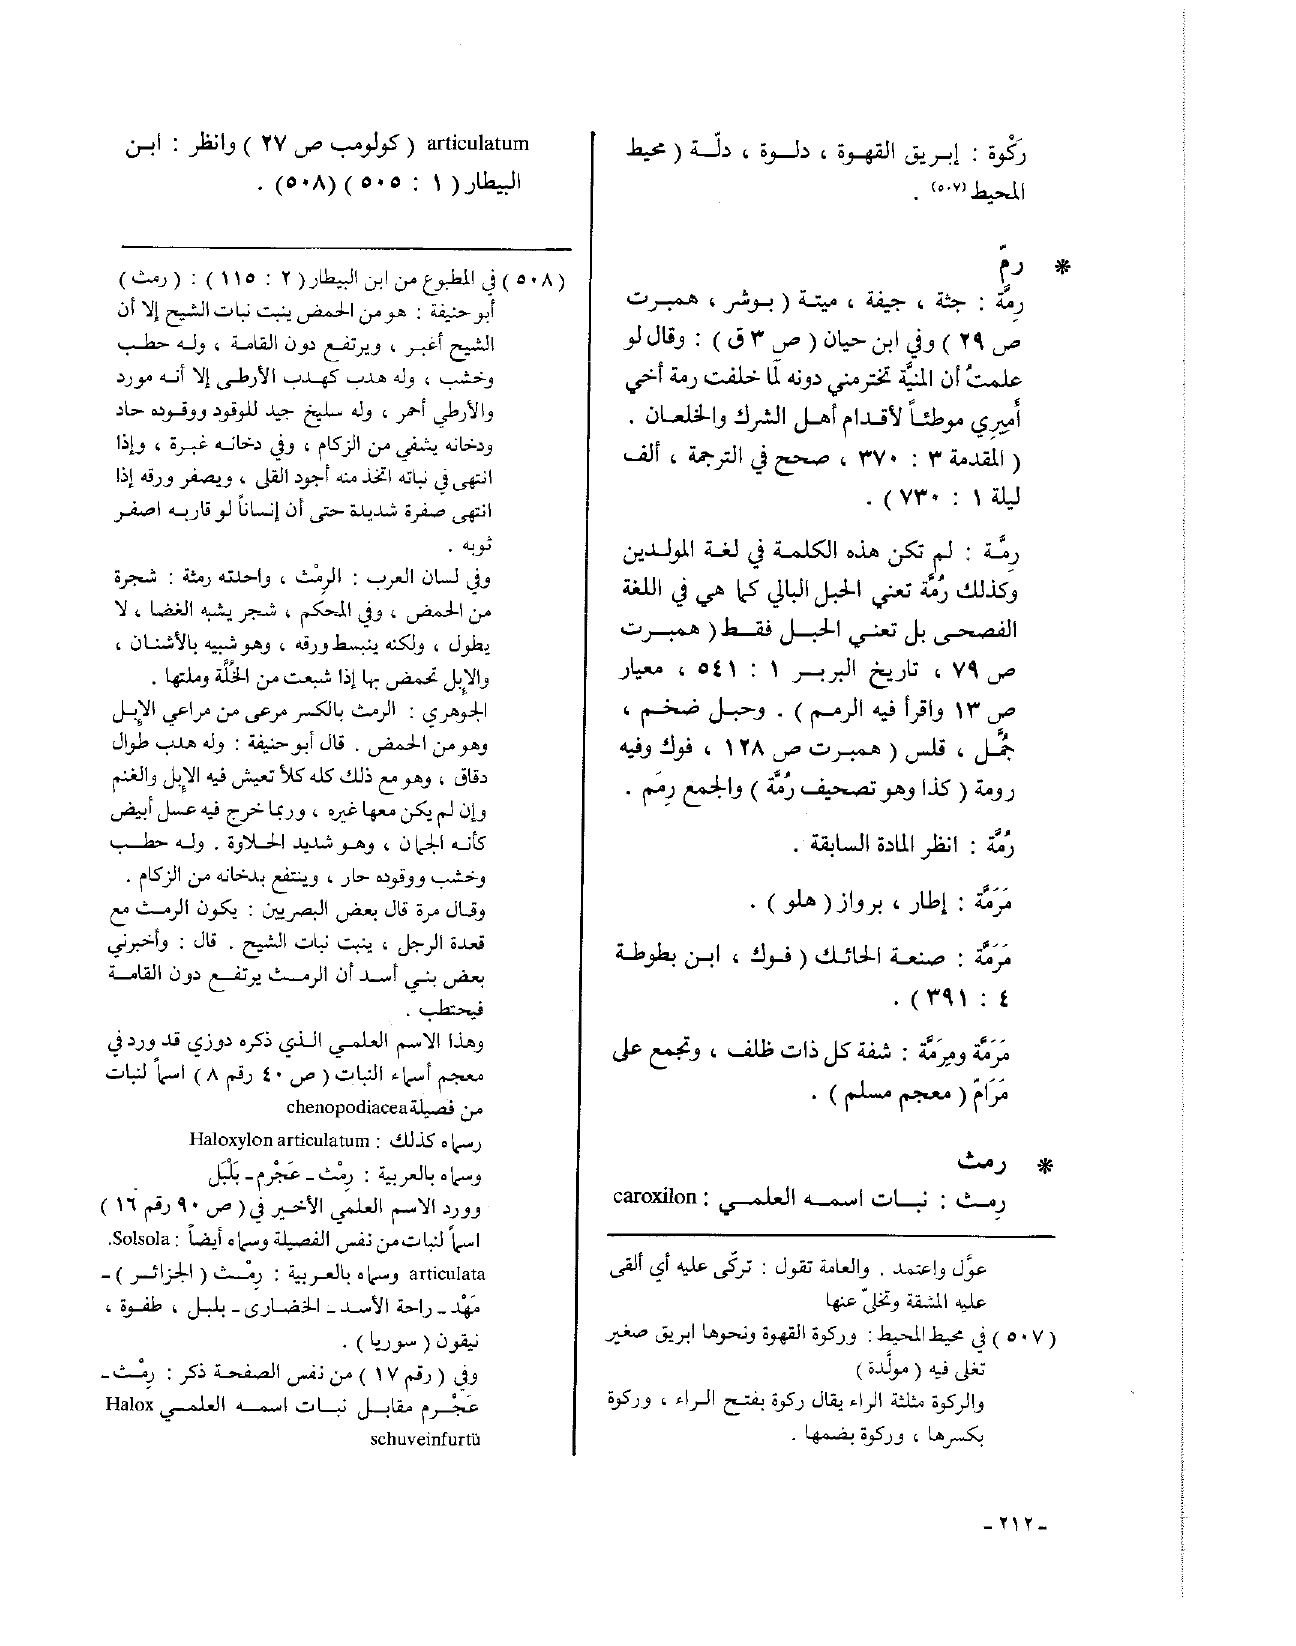 رَكْوة : إبريق القهوة ، دلوة ، دلّة ( محيط
المحيط (٥٠٧) .
* رمّ
رِمَّة : جثة ، جيفة ، ميتة ( بوشر ، همبرت
ص ٢٩ ) وفي ابن حيان ( ص ٣ ق ) : وقال لو
علمتُ أن المنيَّة تخترمني دونه لَما خلفت رمة أخي
أَميرِي موطئاً لأقدام أهل الشرك والخلعان .
( المقدمة ٣ : ٣٧٠ ، صحح في الترجمة ، ألف
ليلة ١ : ٧٣٠ ) .
رِمَّة : لم تكن هذه الكلمة في لغة المولدين
وكذلك رُمَّة تعني الحبل البالي كما هي في اللغة
الفصحى بل تعني الحبل فقط ( همبرت
ص ٧٩ ، تاريخ البربر ١ : ٥٤١ ، معيار
ص ١٣ واقرأ فيه الرمم ) . وحبل ضخم ،
جُمَّل ، قلس ( همبرت ص ١٢٨ ، فوك وفيه
رومة ( كذا وهو تصحيف رُمَّة ) والجمع رِمَم .
رُمَّة : انظر المادة السابقة .
مَرَمَّة : إطار ، برواز ( هلو ) .
مَرَمَّة : صنعة الحائك ( فوك ، ابن بطوطة
٤ : ٣٩١ ) .
مَرَمَّة ومِرَمَّة : شفة كل ذات ظلف ، وتجمع على
مَرَامّ ( معجم مسلم ) .
* رمث
رِمث : نبات اسمه العلمي : caroxilon
عوَّل واعتمد . والعامة تقول : تركّى عليه أي ألقى
عليه المشقة وتخلّى عنها
( ٥٠٧ ) في محيط المحيط : وركوة القهوة ونحوها ابريق صغير
تغلى فيه ( مولَّدة )
والركوة مثلثة الراء يقال ركوة بفتح الراء ، وركوة
بكسرها ، وركوة بضمها .
articulatum ( كولومب ص ٢٧ ) وانظر : ابن
البيطار ( ١ : ٥٠٥ ) (٥٠٨) .
( ٥٠٨ ) في المطبوع من ابن البيطار ( ٢ : ١١٥ ) : ( رمث )
أبو حنيفة : هو من الحمض ينبت نبات الشيح إلا أن
الشيح أغبر ، ويرتفع دون القامة ، وله حطب
وخشب ، وله هدب كهدب الأرطى إلا أنه مورد
والأرطى أحمر ، وله سليخ جيد للوقود ووقوده حاد
ودخانه يشفي من الزكام ، وفي دخانه غبرة ، وإذا
انتهى في نباته اتخذ منه أجود القلى ، ويصفر ورقه إذا
انتهى صفرة شديدة حتى أن إنساناً لو قاربه اصفر
ثوبه .
وفي لسان العرب : الرِمْث ، واحدته رمثة : شجرة
من الحمض ، وفي المحكم ، شجر يشبه الغضا ، لا
يطول ، ولكنه ينبسط ورقه ، وهو شبيه بالأشنان ،
والإبل تحمض بها إذا شبعت من الخُلَّة وملتها .
الجوهري : الرمث بالكسر مرعى من مراعي الإبل
وهو من الحمض . قال أبو حنيفة : وله هدب طوال
دقاق ، وهو مع ذلك كله كلأ تعيش فيه الإبل والغنم
وإن لم يكن معها غيره ، وربما خرج فيه عسل أبيض
كأنه الجمان ، وهو شديد الحلاوة . وله حطب
وخشب ووقوده حار ، وينتفع بدخانه من الزكام .
وقال مرة قال بعض البصريين : يكون الرمث مع
قعدة الرجل ، ينبت نبات الشيح . قال : وأخبرني
بعض بني أسد أن الرمث يرتفع دون القامة
فيحتطب .
وهذا الاسم العلمي الذي ذكره دوزي قد ورد في
معجم أسماء النبات ( ص ٤٠ رقم ٨ ) اسماً لنبات
من فصيلة chenopodiacea
رسماه كذلك : Haloxylon articulatum
وسماه بالعربية : رِمْث - عَجْرم - بَلْبَل
وورد الاسم العلمي الأخير في ( ص ٩٠ رقم ١٦ )
اسماً لنبات من نفس الفصيلة وسماه أيضاً : Solsola.
articulata وسماه بالعربية : رِمْث ( الجزائر ) -
مَهْد - راحة الأسد - الخضارى - بلبل ، طفوة ،
نيقون ( سوريا ) .
وفي ( رقم ١٧ ) من نفس الصفحة ذكر : رِمْث -
عَجْرم مقابل نبات اسمه العلمي Halox
schuveinfurtü
- ٢١٢ -